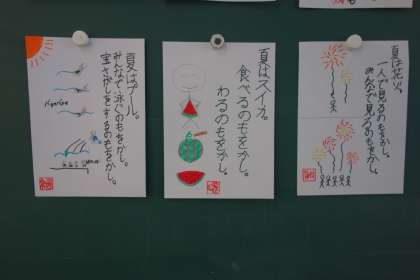 夏はプール。
みんなで泳ぐのもをかし。
宝さがしをするのもをかし。
夏はスイカ。
食べるのもをかし。
わるのもをかし。
夏は花火。
一人で見るのもをかし。
みんなで見るのもをかし。